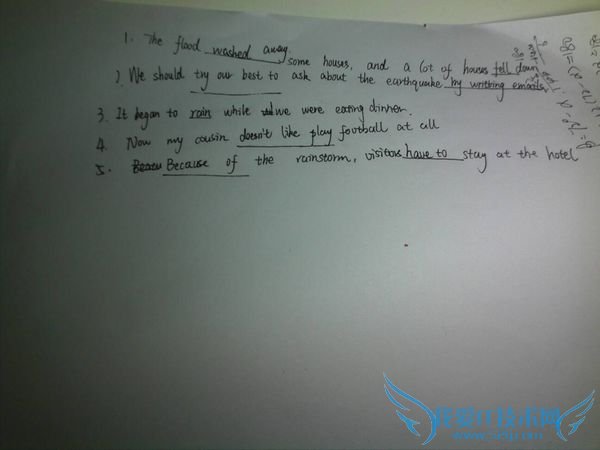 1. The flood washed away some houses, and a lot of houses fell down
2. We should try our best to ask about the earthquake by writting emails
3. It began to rain while we were eating dinner.
4. Now my cousin doesn't like play football at all
5. Because of the rainstorm, visitors have to stay at the hotel